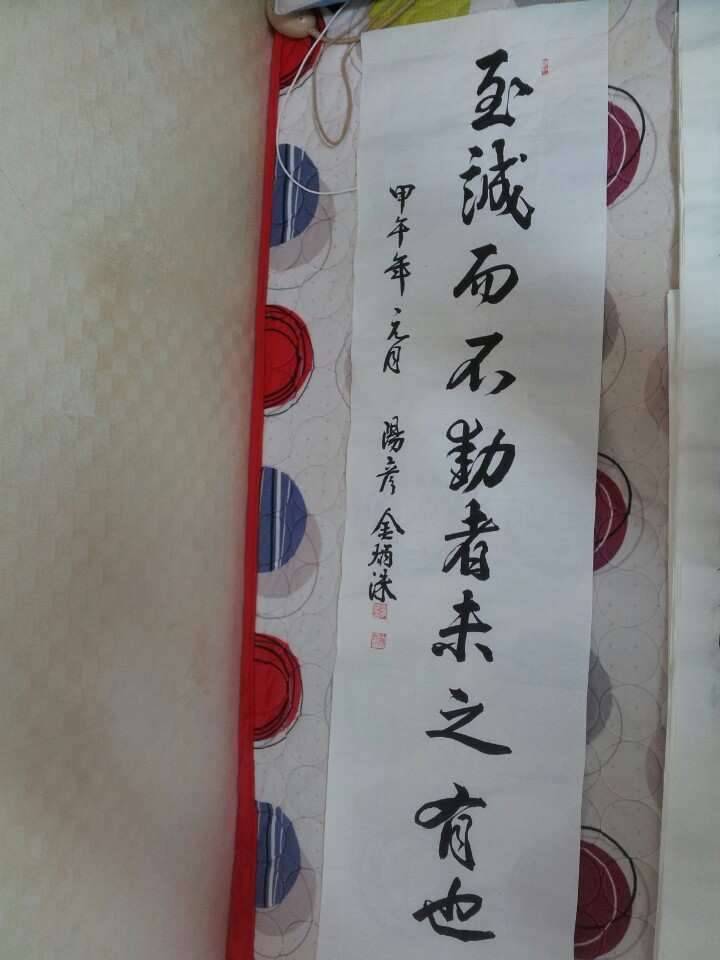 至誠而不動者未之有也
甲午年元月 陽彦 金炳洙